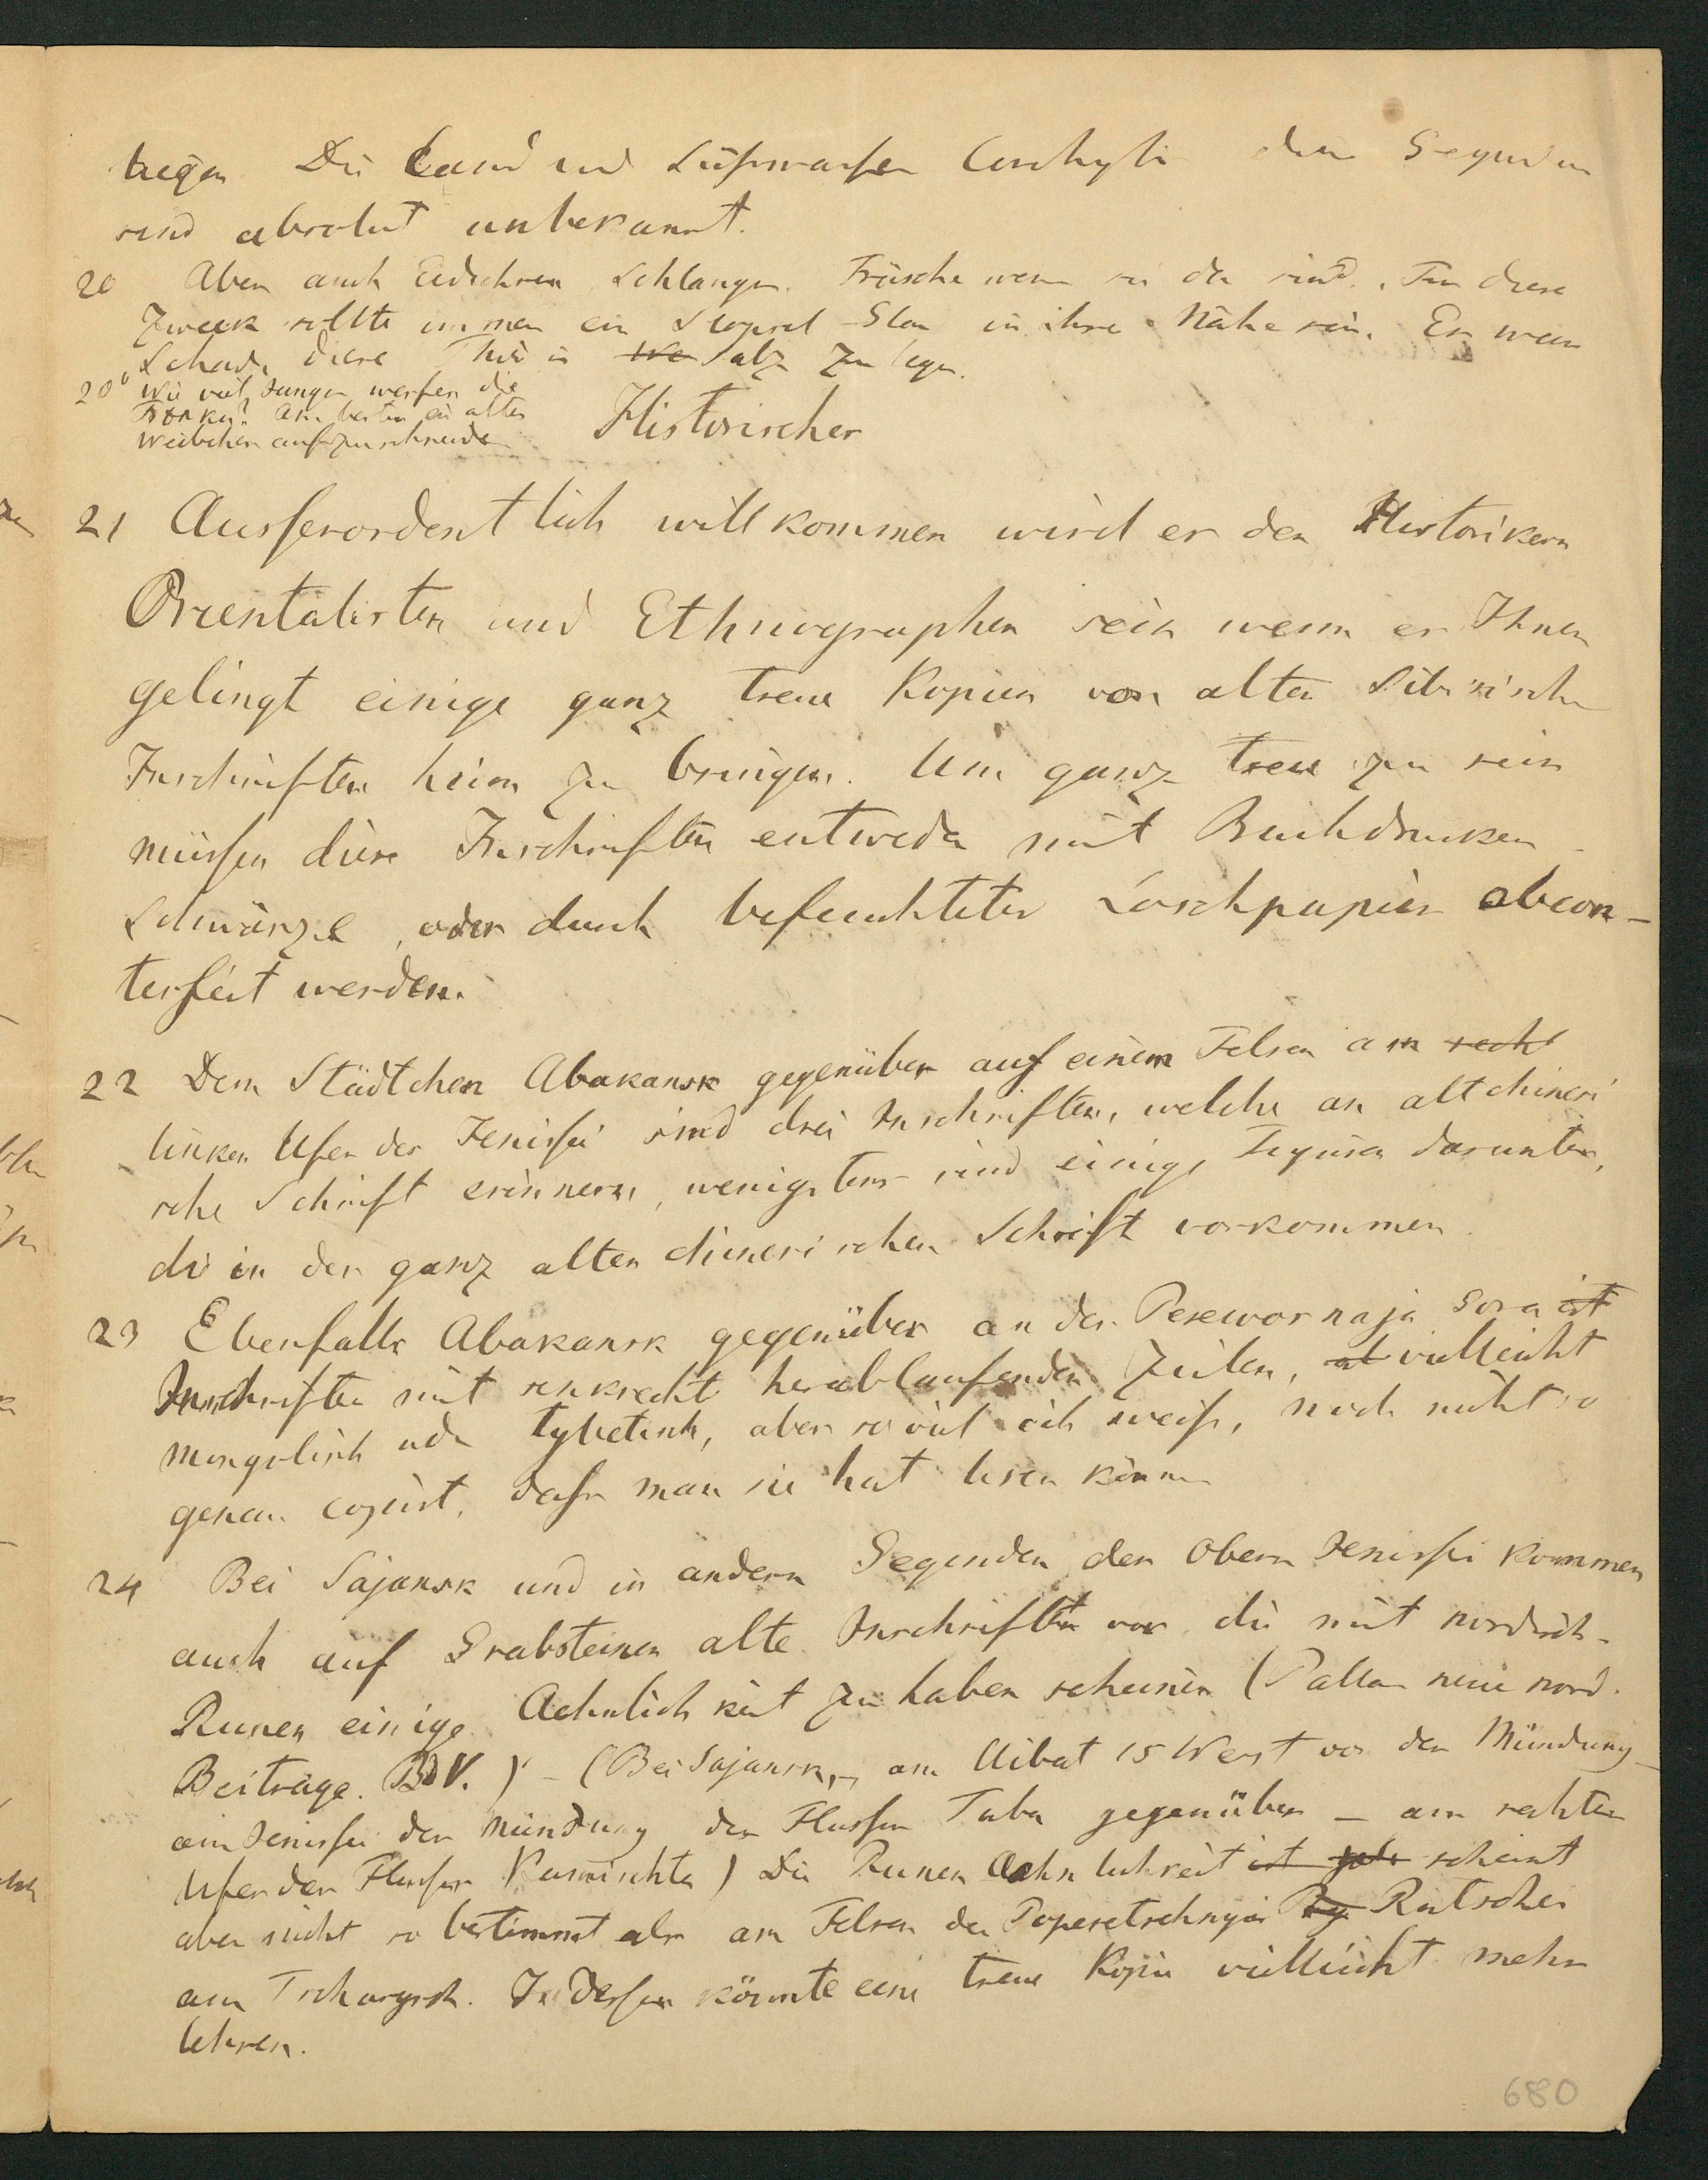 liegen Die Land und Süßwasser Conchylien dieser Gegenden
sind absolut unbekannt.
20 Aber auch Eidechsen Schlangen. Frösche wenn sie da sind. Für diese
Zweck sollte immer ein Stöpsel-Glas in ihre Nähe sein. Es wäre
Schade diese Thiere in We Salz zu legen.
20b Wie viel Jungen werfen die
Am besten ein altes
Weibchen aufzuschneiden
Historisches
21 Ausserordentlich willkommen wird es den Historikern
Orientalisten und Ethnographen sein wenn es Ihnen
gelingt einige ganz treue Kopien von alten Sibirischen
Inschriften heim zu bringen. Um ganz treu zu sein
müssen diese Inschriften entweder mit Buchdrucker-
Schwärze, oder durch befeuchtetes Löschpapier abcon-
terfeit werden.
22 Dem Städtchen Abakansk gegenüber auf einem Felsen am recht
linken Ufer des Jenissei sind drei Inschriften, welche an altchinesi
sche Schrift erinnern, wenigstens sind einige Figuren darunter,
die in der ganz alten chinesischen Schrift vorkommen.
23 Ebenfalls Abakansk gegenüber an der Perewosnaja Gora ist
Inschriften mit senkrecht herablaufenden Zeilen, vielleicht
mongolisch oder tybetisch, aber so viel ich weiß, noch nicht so
genau copirt, daß man sie hat lesen können
24 Bei Sajansk und in andern Gegenden des Obern Jenissei kommen
auch auf Grabsteinen alte Inschriften vor, die mit nordisch-
Runen einige Aehnlichkeit zu haben scheinen (Pallas neue nord.
Beiträge. Bd V.) – (Bei Sajansk, – am Uibat 15 Werst von der Mündung –
am Jenissei der Mündung des Flusses Tuba gegenüber – am rechten
Ufer des Flusses) Die Runen Aehnlichkeit ist scheint
aber nicht so bestimmt als am Felsen der Poperetschnyja Rutschei
am Tscharysch. Indessen könnte eine treue Kopie vielleicht mehr
lehren.
680